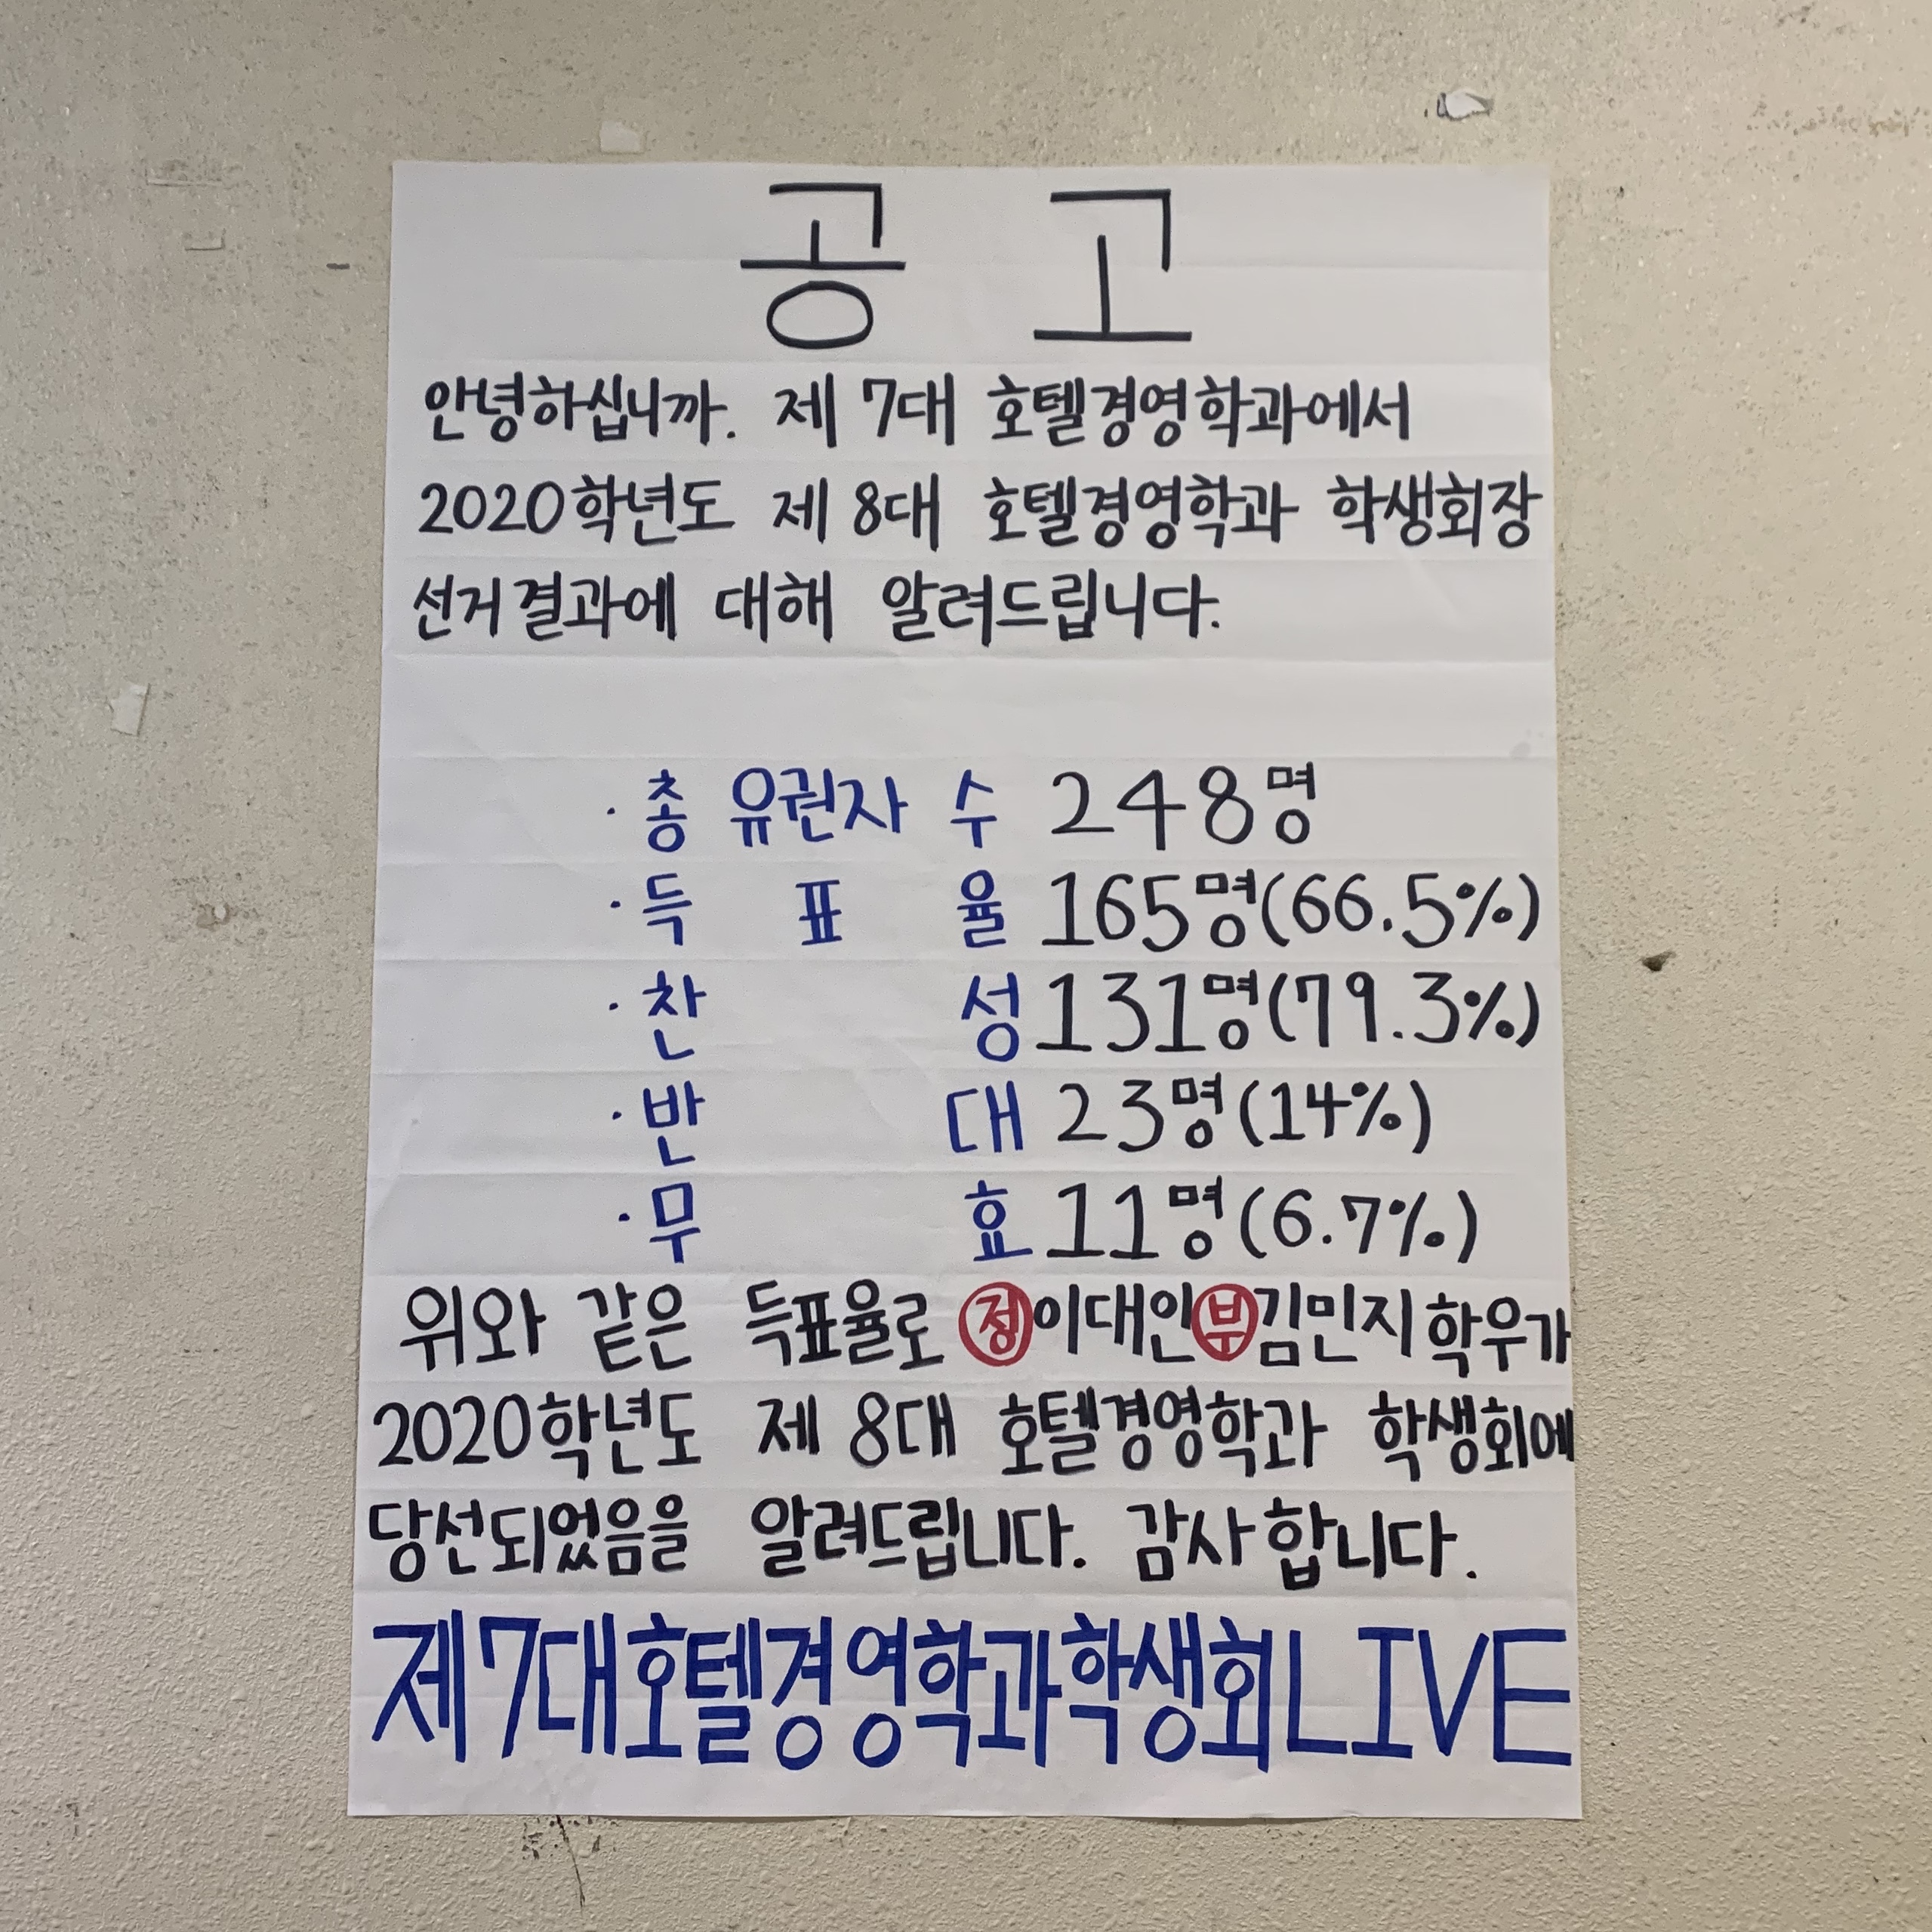 공 고
안녕하십니까. 제 7대 호텔경영학과에서
2020학년도 제 8대 호텔경영학과 학생회장
선거결과에 대해 알려드립니다.
· 총 유권자 수 248명
· 득 표 율 165명(66.5%)
· 찬 성 131명(79.3%)
· 반 대 23명(14%)
· 무 효 11명(6.7%)
위와 같은 득표율로 정이대인부김민지학우가
2020학년도 제 8대 호텔경영학과 학생회에
당선되었음을 알려드립니다. 감사합니다.
제7대호텔경영학과학생회LIVE